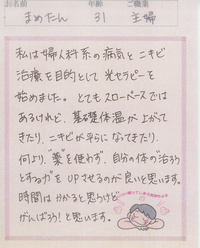 お名前 年齢 ご職業
まめたん 31 主婦
私は婦人科系の病気とニキビ
治療を目的として光セラピーを
始めました。とてもスローペースでは
あるけれど、基礎体温が上がて
きたり、ニキビが平らになってきたり、
何より、"薬"を使わず、自分の体の"治ろう
とする力"をUPさせるのが良いと思います。
時間はかかると思うけど
がんばろう!と思います。